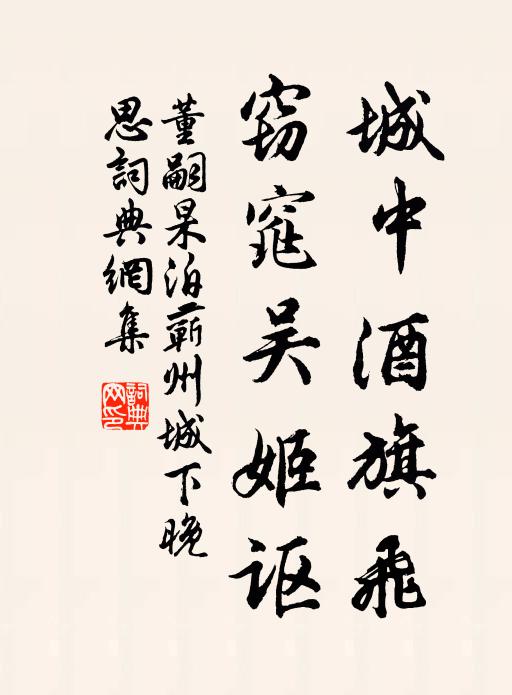 城中酒旗飛
窈窕吴姬讴
董嗣杲泊蘄州城下晚
思詞典網集
詞典網印